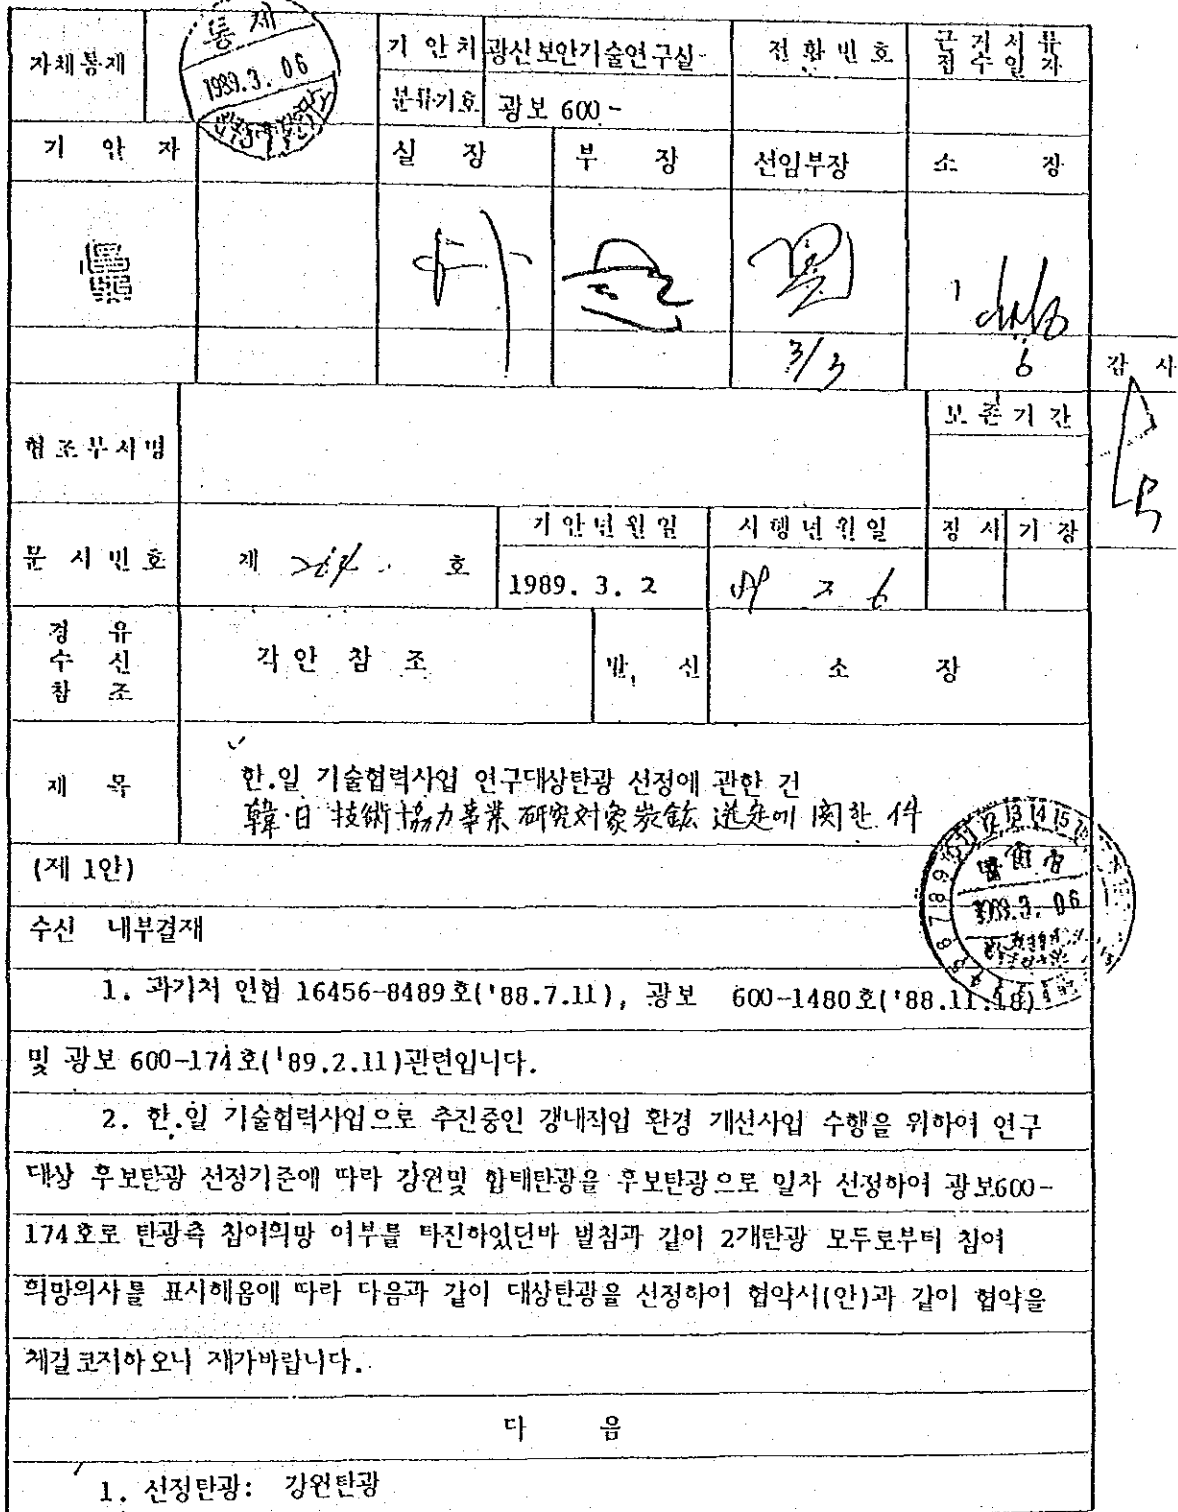 자체통제
통제
1989.3.06
기안처 광산보안기술연구실
전화번호
근거서류
접수일자
분류기호 광보 600-
기 안 자
실 장
부 장
선임부장
소 장
3/3
6
감 사
협조부서명
보존기간
문서번호
제 호
기안년월일
시행년월일
정서 기장
1989. 3. 2
89 3 6
경유
수신
참조
각안 참조
발 신
소 장
제 목
한.일 기술협력사업 연구대상탄광 선정에 관한 건
韓·日 技術協力事業 硏究対象炭鉱 選定에 関한 件
(제 1안)
수신 내부결재
1989.3.06
1. 과기처 인협 16456-8489호('88.7.11), 광보 600-1480호('88.11.18)
및 광보 600-174호('89.2.11)관련입니다.
2. 한.일 기술협력사업으로 추진중인 갱내작업 환경 개선사업 수행을 위하여 연구
대상 후보탄광 선정기준에 따라 강원및 함태탄광을 후보탄광으로 일차 선정하여 광보600-
174호로 탄광측 참여희망 여부를 타진하였던바 별첨과 같이 2개탄광 모두로부터 참여
희망의사를 표시해옴에 따라 다음과 같이 대상탄광을 선정하여 협약서(안)과 같이 협약을
체결코저하오니 재가바랍니다.
다 음
1. 선정탄광: 강원탄광